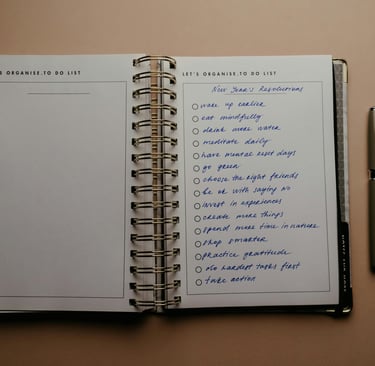 S ORGANISE.TO DO LIST
LET'S ORGANISE.TO DO LIST
New Year's Resolutions
wake up earlier
eat mindfully
drink more water
meditate daily
have mental reset days
go green
choose the right friends
be ok with saying no
invest in experiences
create more things
spend more time in nature
shop smarter
practice gratitude
do hardest tasks first
take action